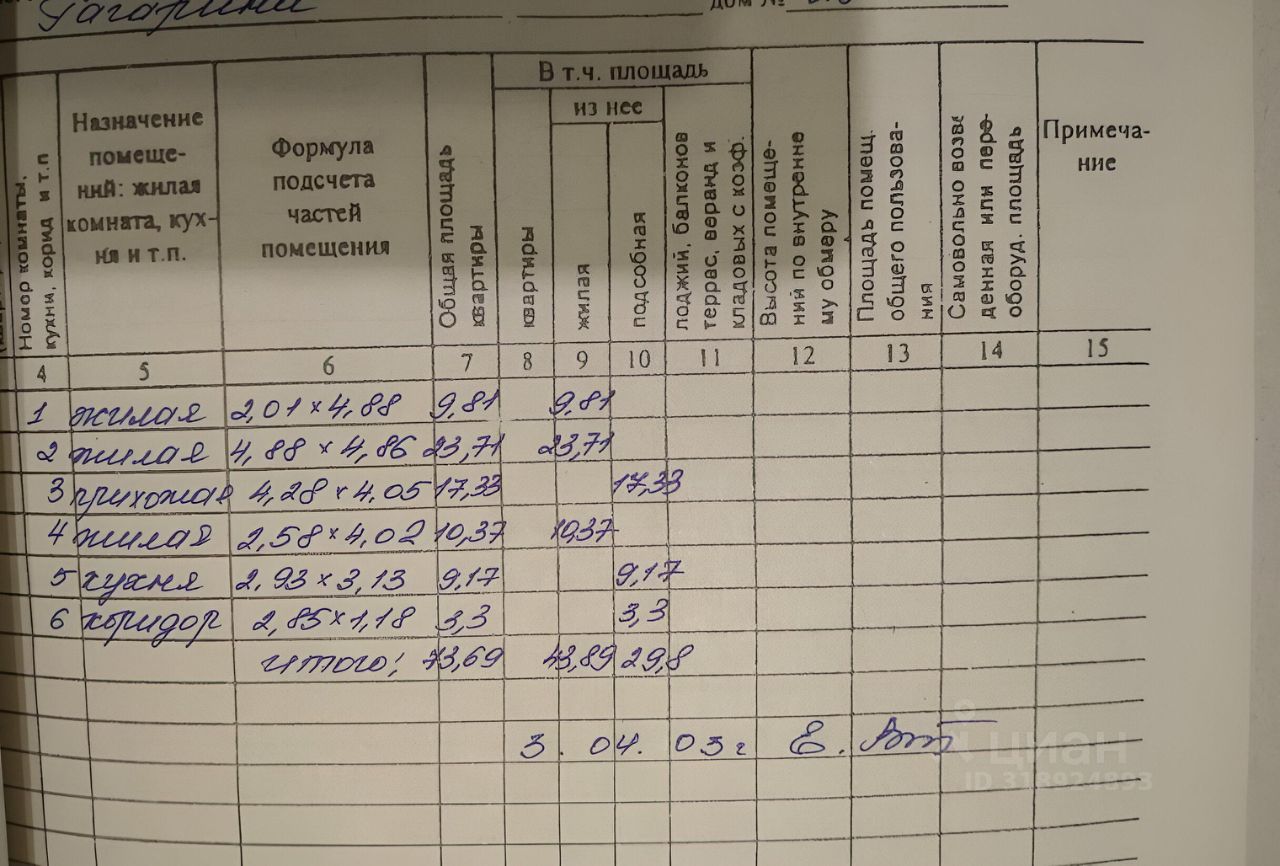 Гагарина
дом №
Номер комнаты, кухни, корид и т.п
Назначение помеще-
ний: жилая
комната, кух-
ня и т.п.
Формула
подсчета
частей
помещения
Общая площадь
квартиры
В т.ч. площадь
квартиры
из нее
жилая
подсобная
лоджий, балконов
террас, веранд и
кладовых с коэф.
Высота помеще-
ний по внутренне
му обмеру
Площадь помещ.
общего пользова-
ния
Самовольно возве
денная или пере-
оборуд. площадь
Примеча-
ние
4 5 6 7 8 9 10 11 12 13 14 15
1 жилая 2,01 × 4,88 9,81 9,81
2 жилая 4,88 × 4,86 23,71 23,71
3 прихожая 4,28 × 4.05 17,33 17,33
4 жилая 2,58 × 4,02 10,37 10,37
5 кухня 2,93 × 3,13 9,17 9,17
6 коридор 2,85 × 1,18 3,3 3,3
итого: 73,69 43,89 29,8
3. 04. 03 г Е.
циан
ID 318924893